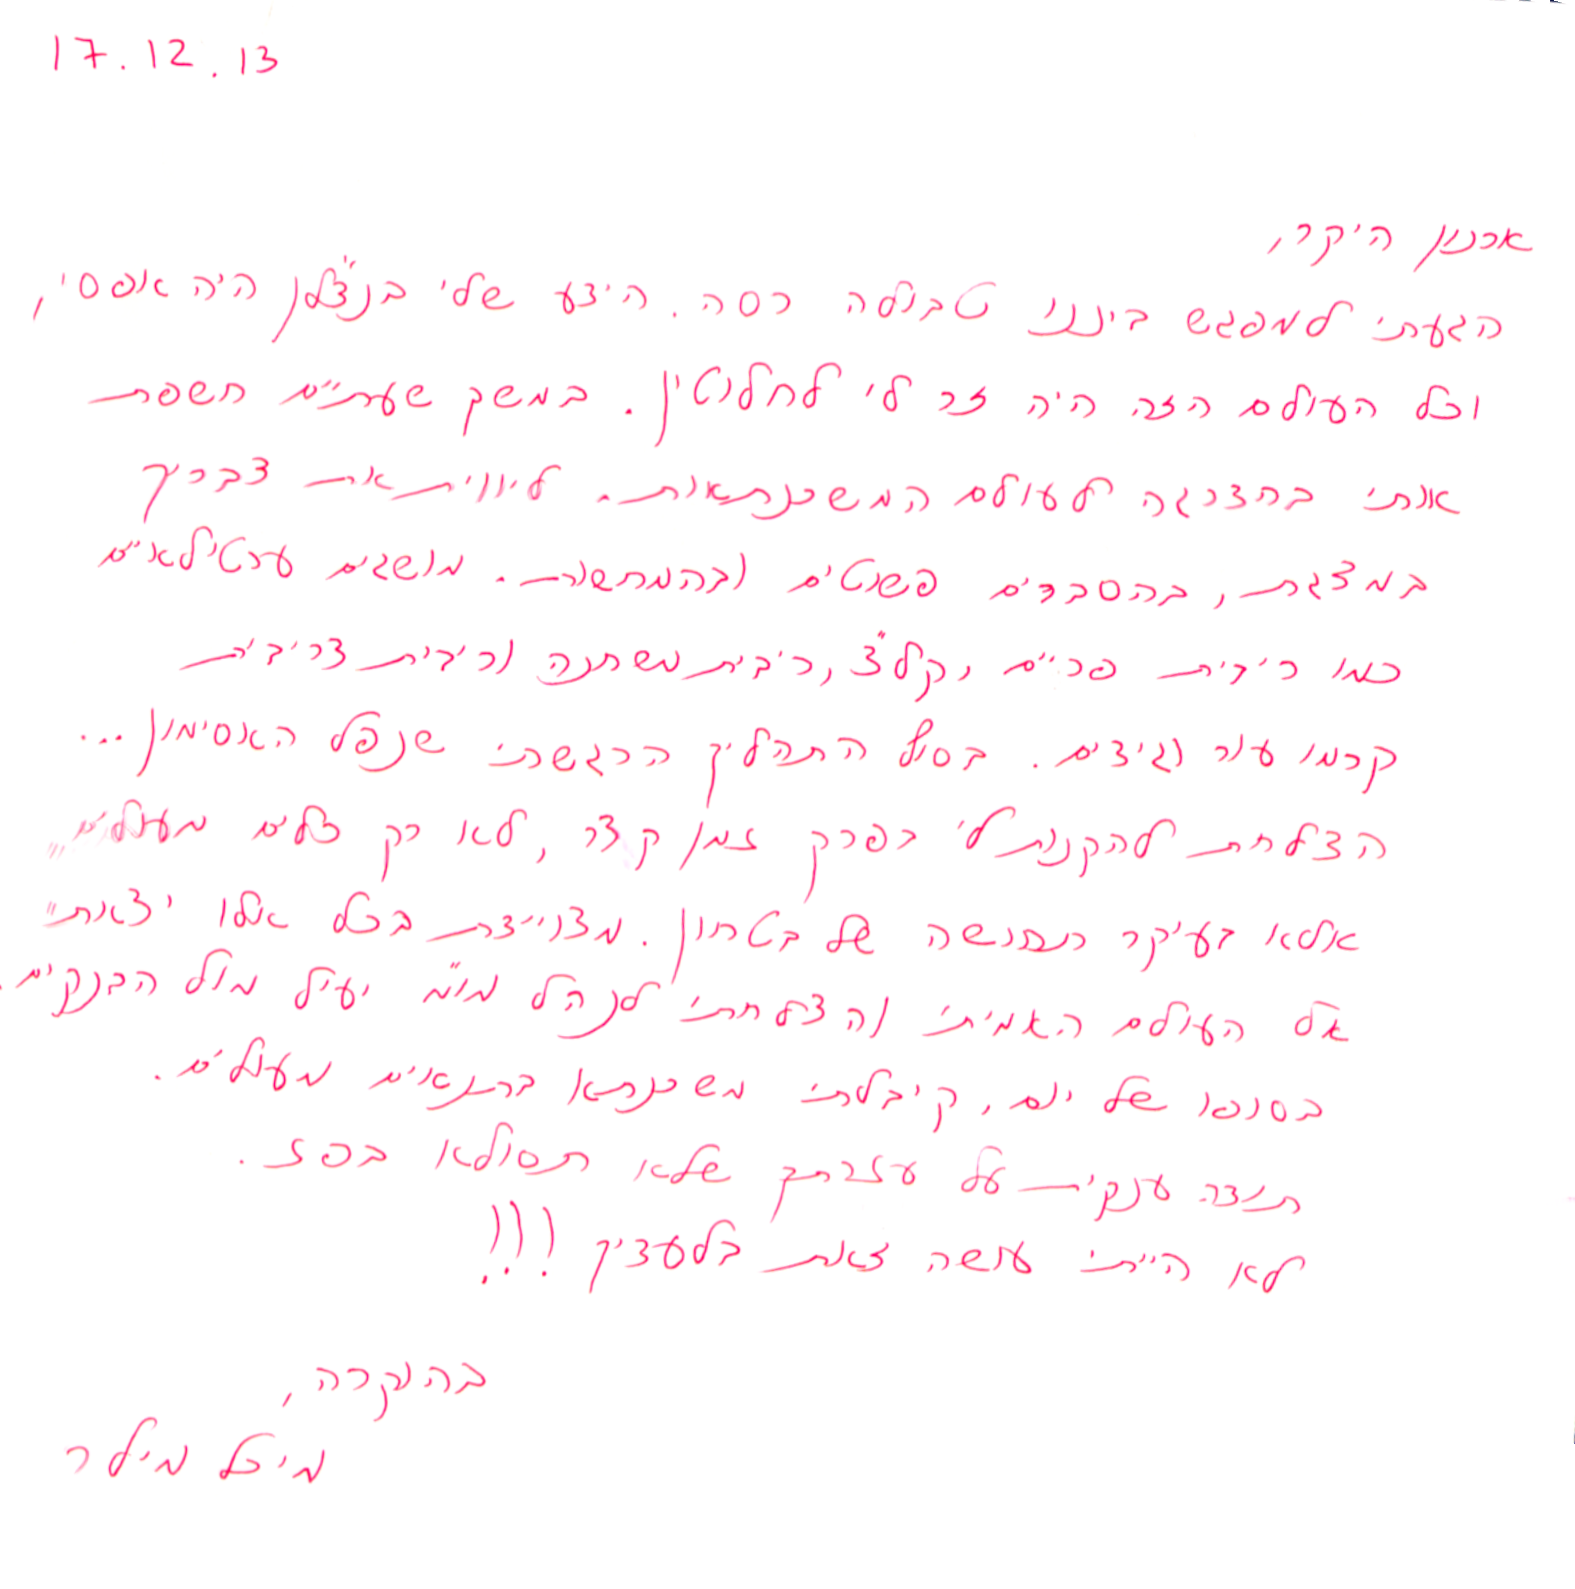 17.12.13
ארנון היקר,
הגעתי למפגש בינינו טבולה רסה. הידע שלי בנדל"ן היה אפסי,
וכל העולם הזה היה זר לי לחלוטין. במשך שעתיים חשפת
אותי בהדרגה לעולם המשכנתאות. ליווית את דבריך
במצגת, בהסברים פשוטים ובהמחשות. מושגים ערטילאיים
כמו ריבית פריים, קל"צ, ריבית משתנה וריבית צריבית
קרמו עור וגידים. בסוף התהליך הרגשתי שנפל האסימון...
הצלחת להקנות לי בפרק זמן קצר, לא רק כלים מעולים,
אלא בעיקר תחושה של בטחון. מצויידת בכל אלו יצאתי
אל העולם האמיתי והצלחתי לנהל מו"מ יעיל מול הבנקים.
בסופו של יום, קיבלתי משכנתא בתנאים מעולים.
תודה ענקית על עזרתך שלא תסולא בפז.
לא הייתי עושה זאת בלעדיך!!!
בהוקרה,
מיכל מילר